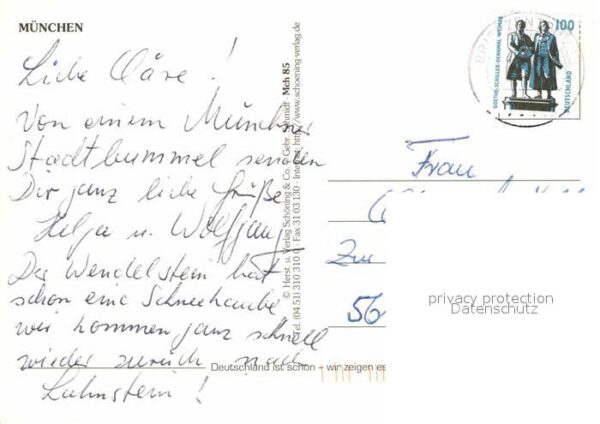 MÜNCHEN
Liebe Cläre!
Von einem Münchner
Stadtbummel senden
Dir ganz liebe Grüße
Helga u. Wolfgang
Der Wendelstein hat
schon eine Schneehaube
wir kommen ganz schnell
wieder zurück nach
Lahnstein!
© Herst. u. Verlag Schöning & Co. Gebr. Schmidt · Mch 85
Tel. (04 51) 310 310 · Fax 31 03 130 · Internet: http://www.schoening-verlag.de
Deutschland ist schön - wir zeigen es
GOETHE-SCHILLER-DENKMAL WEIMAR
100
DEUTSCHLAND
BRIEFZENTRUM
Frau
Zur
56
privacy protection
Datenschutz